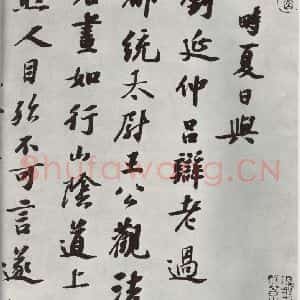 時夏日與
劉延仲呂辯老過
都統太尉王公觀法
書畫如行山陰道上
照人目欲不可言遂
Shufawang.CN